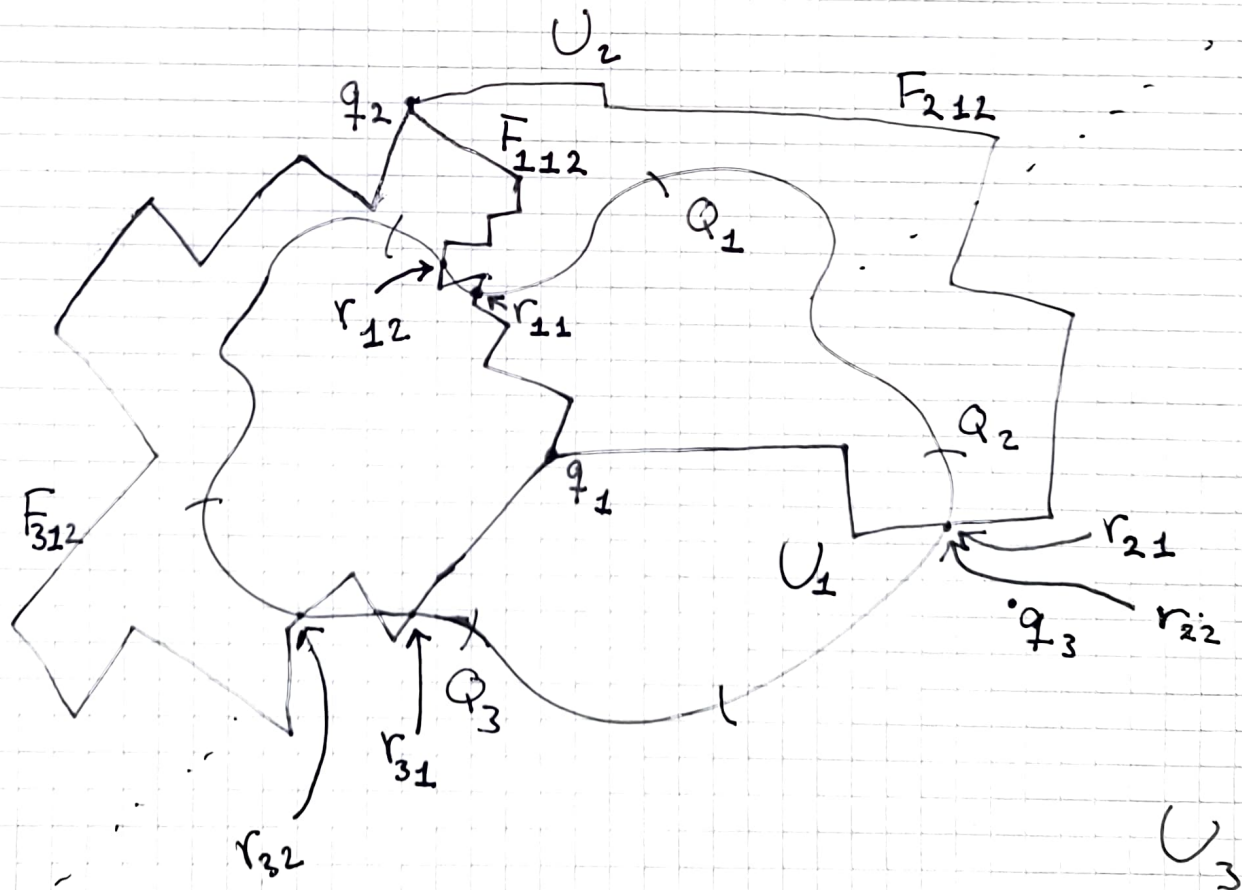 U₂
q₂
F₂₁₂
F₁₁₂
Q₁
r₁₂
r₁₁
Q₂
q₁
F₃₁₂
r₂₁
U₁
q₃
r₂₂
Q₃
r₃₁
r₃₂
U₃